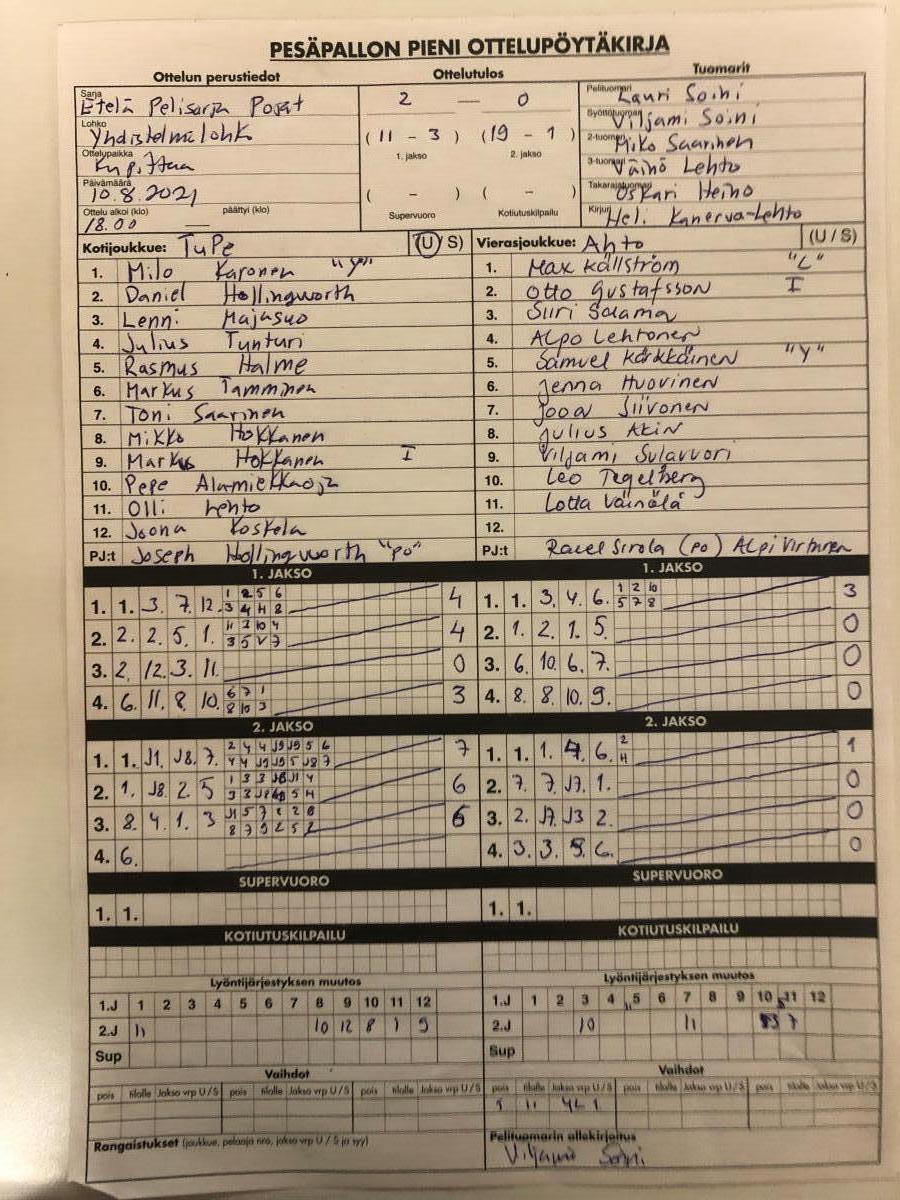 PESÄPALLON PIENI OTTELUPÖYTÄKIRJA
Ottelun perustiedot Ottelutulos Tuomarit
Sarja Etelä Pelisarja Pojat 2 — 0 Pelituomari Lauri Soini
Lohko Yhdistelmälohk (11 - 3) (19 - 1) Syöttötuomari Viljami Soini
1. jakso 2. jakso 2-tuomari Miko Saarinen
Ottelupaikka Kupittaa 3-tuomari Väinö Lehto
Päivämäärä 10.8.2021 ( - ) ( - ) Takarajatuomari Oskari Heino
Ottelu alkoi (klo) 18.00 päättyi (klo) — Supervuoro Kotiutuskilpailu Kirjuri Heli Kanerva-Lehto
Kotijoukkue: TuPe (U/S) Vierasjoukkue: Ahto (U/S)
1. Milo Karonen "Y" 1. Max Källström "L"
2. Daniel Hollingworth 2. Otto Gustafsson I
3. Lenni Majasuo 3. Siiri Salama
4. Julius Tunturi 4. Alpo Lehtonen
5. Rasmus Halme 5. Samuel Kärkkäinen "Y"
6. Markus Tamminen 6. Jenna Huovinen
7. Toni Saarinen 7. Joona Siivonen
8. Mikko Hokkanen 8. Julius Akin
9. Markus Hokkanen I 9. Viljami Sulavuori
10. Pepe Alamiekkaoja 10. Leo Tegelberg
11. Olli Lehto 11. Lotta Väinälä
12. Joona Koskela 12.
PJ:t Joseph Hollingworth "PO" PJ:t (PO) Alpi Virtanen
1. JAKSO 1. JAKSO
1. 1. 3. 7. 12. 1 2 5 6 4 1. 1. 3. 4. 6. 1 2 10 3
3 4 11 8 5 7 8
2. 2. 2. 5. 1. 11 2 10 4 4 2. 1. 2. 1. 5. 0
3. 2. 12. 3. 11. 0 3. 6. 10. 6. 7. 0
4. 6. 11. 8. 10. 6 7 1 3 4. 8. 8. 10. 9. 0
8 10 3
2. JAKSO 2. JAKSO
1. 1. J1. J8. 7. 7 1. 1. 1. 4. 6. 2 1
2. 1. J8. 2. 5 6 2. 7. 7. J7. 1. 0
3. 8. 4. 1. 3 6 3. 2. J7 J3 2. 0
4. 6. 4. 3. 3. 6. 0
SUPERVUORO SUPERVUORO
1. 1. 1. 1.
KOTIUTUSKILPAILU KOTIUTUSKILPAILU
Lyöntijärjestyksen muutos Lyöntijärjestyksen muutos
1.J 1 2 3 4 5 6 7 8 9 10 11 12 1.J 1 2 3 4 5 6 7 8 9 10 11 12
2.J 11 10 12 8 1 9 2.J 10 11 7
Sup Sup
Vaihdot Vaihdot
pois tilalle Jakso vrp U/S pois tilalle Jakso vrp U/S pois tilalle Jakso vrp U/S pois tilalle Jakso vrp U/S pois tilalle Jakso vrp U/S pois tilalle Jakso vrp U/S
Rangaistukset (joukkue, pelaaja nro, jakso vrp U / S ja syy) Pelituomarin allekirjoitus
Viljami Soini